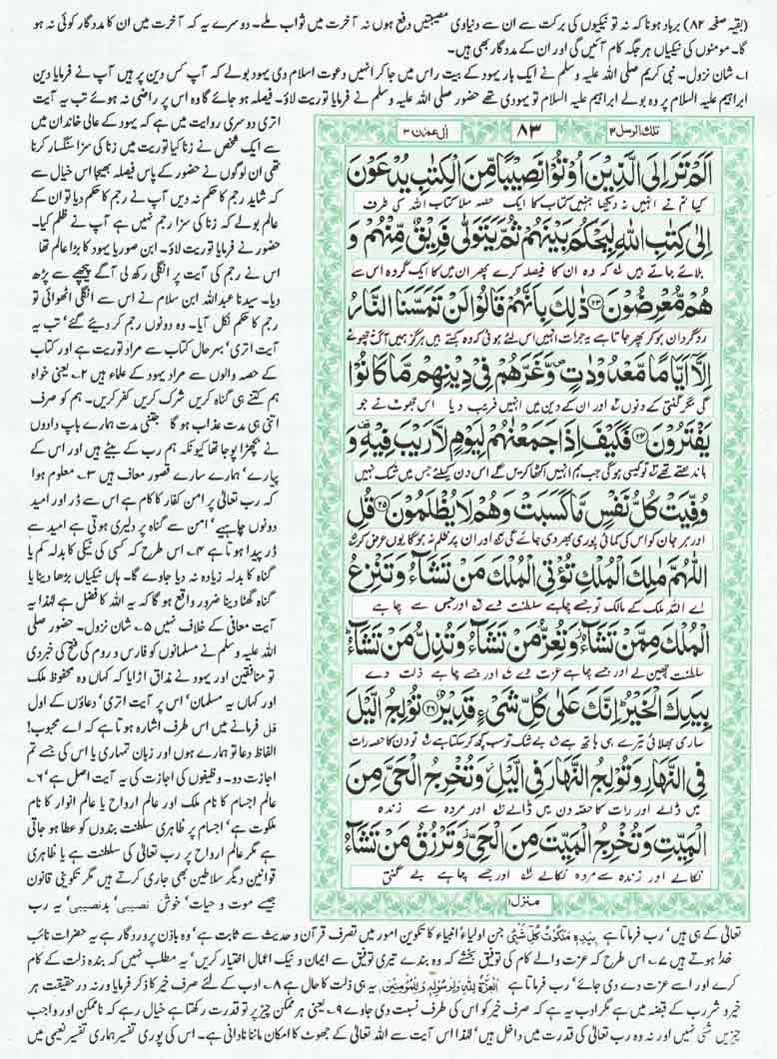 (بقیہ صفحہ ۸۲) برباد ہونا کہ نہ تو نیکیوں کی برکت سے ان سے دنیاوی مصیبتیں دفع ہوں نہ آخرت میں ثواب ملے۔ دوسرے یہ کہ آخرت میں ان کا مددگار کوئی نہ ہو
گا۔ مومنوں کی نیکیاں ہر جگہ کام آئیں گی اور ان کے مددگار بھی ہیں۔
۱؎ شان نزول۔ نبی کریم صلی اللہ علیہ وسلم نے ایک بار یہود کے بیت راس میں جا کر انہیں دعوت اسلام دی یہود بولے کہ آپ کس دین پر ہیں آپ نے فرمایا دین
ابراہیم علیہ السلام پر وہ بولے ابراہیم علیہ السلام تو یہودی تھے حضور صلی اللہ علیہ وسلم نے فرمایا توریت لاؤ۔ فیصلہ ہو جائے گا وہ اس پر راضی نہ ہوئے تب یہ آیت
اتری دوسری روایت میں ہے کہ یہود کے عالی خاندان میں
سے ایک شخص نے زنا کیا توریت میں زنا کی سزا سنگسار کرنا
تھی ان لوگوں نے حضور کے پاس فیصلہ بھیجا اس خیال سے
کہ شاید رجم کا حکم نہ دیں آپ نے رجم کا حکم دیا تو ان کے
عالم بولے کہ زنا کی سزا رجم نہیں ہے آپ نے ظلم کیا۔
حضور نے فرمایا توریت لاؤ۔ ابن صوریا یہود کا بڑا عالم تھا
اس نے رجم کی آیت پر انگلی رکھ لی آگے پیچھے سے پڑھ
دیا۔ سیدنا عبداللہ ابن سلام نے اس سے انگلی اٹھوائی تو
رجم کا حکم نکل آیا۔ وہ دونوں رجم کر دیئے گئے‘ تب یہ
آیت اتری‘ بہرحال کتاب سے مراد توریت ہے اور کتاب
کے حصہ والوں سے مراد یہود کے علماء ہیں ۲؎ یعنی خواہ
ہم کتنے ہی گناہ کریں شرک کریں کفر کریں۔ ہم کو صرف
اتنی ہی مدت عذاب ہو گا جتنی مدت ہمارے باپ دادوں
نے بچھڑا پوجا تھا کیونکہ ہم رب کے بیٹے ہیں اور اس کے
پیارے‘ ہمارے سارے قصور معاف ہیں ۳؎ معلوم ہوا
کہ رب تعالیٰ پر امن کفار کا کام ہے اس سے ڈر اور امید
دونوں چاہیے‘ امن سے گناہ پر دلیری ہوتی ہے امید سے
ڈر پیدا ہوتا ہے ۴؎ اس طرح کہ کسی کی نیکی کا بدلہ کم یا
گناہ کا بدلہ زیادہ نہ دیا جاوے گا۔ ہاں نیکیاں بڑھا دینا یا
گناہ گھٹا دینا ضرور واقع ہو گا کہ یہ اللہ کا فضل ہے لہٰذا یہ
آیت معافی کے خلاف نہیں ۵؎ شان نزول۔ حضور صلی
اللہ علیہ وسلم نے مسلمانوں کو فارس و روم کی فتح کی خبر دی
تو منافقین اور یہود نے مذاق اڑایا کہ کہاں وہ محفوظ ملک
اور کہاں یہ مسلمان‘ اس پر آیت اتری‘ دعاؤں کے اول
قل فرمانے میں اس طرف اشارہ ہوتا ہے کہ اے محبوب!
الفاظ دعا تو ہمارے ہوں اور زبان تمہاری یا اس کی جسے تم
اجازت دو۔ وظیفوں کی اجازت کی یہ آیت اصل ہے‘ ۶؎
عالم اجسام کا نام ملک اور عالم ارواح یا عالم انوار کا نام
ملکوت ہے‘ اجسام پر ظاہری سلطنت بندوں کو عطا ہو جاتی
ہے مگر عالم ارواح پر رب تعالیٰ کی سلطنت ہے یا ظاہری
قوانین دیگر سلاطین بھی جاری کرتے ہیں مگر تکوینی قانون
جیسے موت و حیات‘ خوش نصیبی‘ بدنصیبی‘ یہ رب
تلك الرسل ۳
۸۳
اٰل عمرٰن ۳
اَلَمْ تَرَ اِلَى الَّذِيْنَ اُوْتُوْا نَصِيْبًا مِّنَ الْكِتٰبِ يُدْعَوْنَ
کیا تم نے انہیں نہ دیکھا جنہیں کتاب کا ایک حصہ ملا کتاب اللہ کی طرف
اِلٰى كِتٰبِ اللّٰهِ لِيَحْكُمَ بَيْنَهُمْ ثُمَّ يَتَوَلّٰى فَرِيْقٌ مِّنْهُمْ وَ
بلائے جاتے ہیں لہ کہ وہ ان کا فیصلہ کرے پھر ان میں کا ایک گروہ اس سے
هُمْ مُّعْرِضُوْنَ ۲۳ ذٰلِكَ بِاَنَّهُمْ قَالُوْا لَنْ تَمَسَّنَا النَّارُ
روگرداں ہو کر پھر جاتا ہے یہ جرات انہیں اس لئے ہوئی کہ وہ کہتے ہیں ہرگز ہمیں آگ نہ چھوئے
اِلَّاۤ اَيَّامًا مَّعْدُوْدٰتٍ وَّغَرَّهُمْ فِيْ دِيْنِهِمْ مَّا كَانُوْا
گی مگر گنتی کے دنوں اور ان کے دین میں انہیں فریب دیا اس جھوٹ نے جو
يَفْتَرُوْنَ ۲۴ فَكَيْفَ اِذَا جَمَعْنٰهُمْ لِيَوْمٍ لَّا رَيْبَ فِيْهِ وَ
باندھتے تھے تو کیسی ہو گی جب ہم انہیں اکٹھا کریں گے اس دن کیلئے جس میں شک نہیں
وُفِّيَتْ كُلُّ نَفْسٍ مَّا كَسَبَتْ وَهُمْ لَا يُظْلَمُوْنَ ۲۵ قُلِ
اور ہر جان کو اس کی کمائی پوری بھر دی جائے گی اور ان پر ظلم نہ ہو گا یوں عرض کر
اللّٰهُمَّ مٰلِكَ الْمُلْكِ تُؤْتِي الْمُلْكَ مَنْ تَشَآءُ وَتَنْزِعُ
اے اللہ ملک کے مالک تو جسے چاہے سلطنت دے اور جس سے چاہے
الْمُلْكَ مِمَّنْ تَشَآءُ وَتُعِزُّ مَنْ تَشَآءُ وَتُذِلُّ مَنْ تَشَآءُ
سلطنت چھین لے اور جسے چاہے عزت دے اور جسے چاہے ذلت دے
بِيَدِكَ الْخَيْرُ اِنَّكَ عَلٰى كُلِّ شَيْءٍ قَدِيْرٌ ۲۶ تُوْلِجُ الَّيْلَ
ساری بھلائی تیرے ہی ہاتھ ہے بے شک تو سب کچھ کر سکتا ہے تو دن کا حصہ رات
فِي النَّهَارِ وَتُوْلِجُ النَّهَارَ فِي الَّيْلِ وَتُخْرِجُ الْحَيَّ مِنَ
میں ڈالے اور رات کا حصہ دن میں ڈالے اور مردہ سے زندہ
الْمَيِّتِ وَتُخْرِجُ الْمَيِّتَ مِنَ الْحَيِّ وَتَرْزُقُ مَنْ تَشَآءُ
نکالے اور زندہ سے مردہ نکالے اور جسے چاہے بے گنتی
منزل ۱
تعالیٰ کے ہی ہیں‘ رب فرماتا ہے بِيَدِهٖ مَلَكُوْتُ كُلِّ شَيْءٍ جن اولیاء‘ انبیاء کا تکوین امور میں تصرف قرآن و حدیث سے ثابت ہے‘ وہ باذن پروردگار ہے یہ حضرات نائب
خدا ہوتے ہیں ۷؎ اس طرح کہ عزت والے کام کی توفیق بخشے کہ وہ بندے تیری توفیق سے ایمان و نیک اعمال اختیار کریں‘ یہ مطلب نہیں کہ بندہ ذلت کے کام
کرے اور اسے عزت دے دی جائے‘ رب فرماتا ہے اَلْعِزَّةُ لِلّٰهِ وَلِرَسُوْلِهٖ وَلِلْمُؤْمِنِيْنَ یہ ہی ذلت کا حال ہے ۸؎ ادب کے لئے صرف خیر کا ذکر فرمایا ورنہ در حقیقت ہر
خیر و شر رب کے قبضہ میں ہے مگر ادب یہ ہے کہ صرف خیر کو اس کی طرف نسبت دی جاوے ۹؎ یعنی ہر ممکن چیز پر تو قدرت رکھتا ہے خیال رہے کہ ناممکن اور واجب
چیزیں شئ نہیں اور نہ وہ رب تعالیٰ کی قدرت میں داخل ہیں‘ لہٰذا اس آیت سے اللہ تعالیٰ کے جھوٹ کا امکان ماننا نادانی ہے۔ اس کی پوری تفسیر ہماری تفسیر نعیمی میں